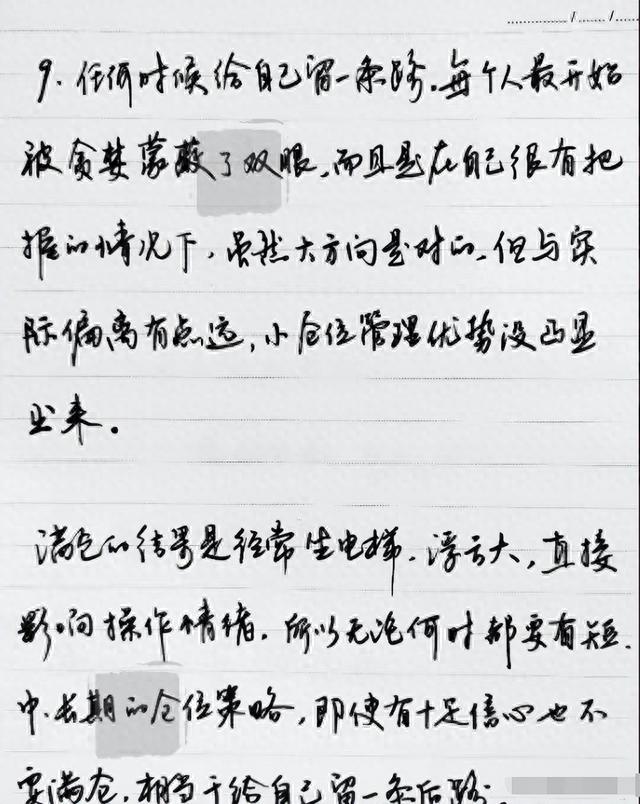 9. 任何时候给自己留一条路。每个人最开始
被贪婪蒙蔽了双眼,而且是在自己很有把
握的情况下,虽然大方向是对的,但与实
际偏离有点远,小仓位管理优势没凸显
出来。
满仓的结果是经常坐电梯,浮亏大,直接
影响操作情绪。所以无论何时都要有短.
中.长期的仓位策略,即使有十足信心也不
要满仓,相当于给自己留一条后路.